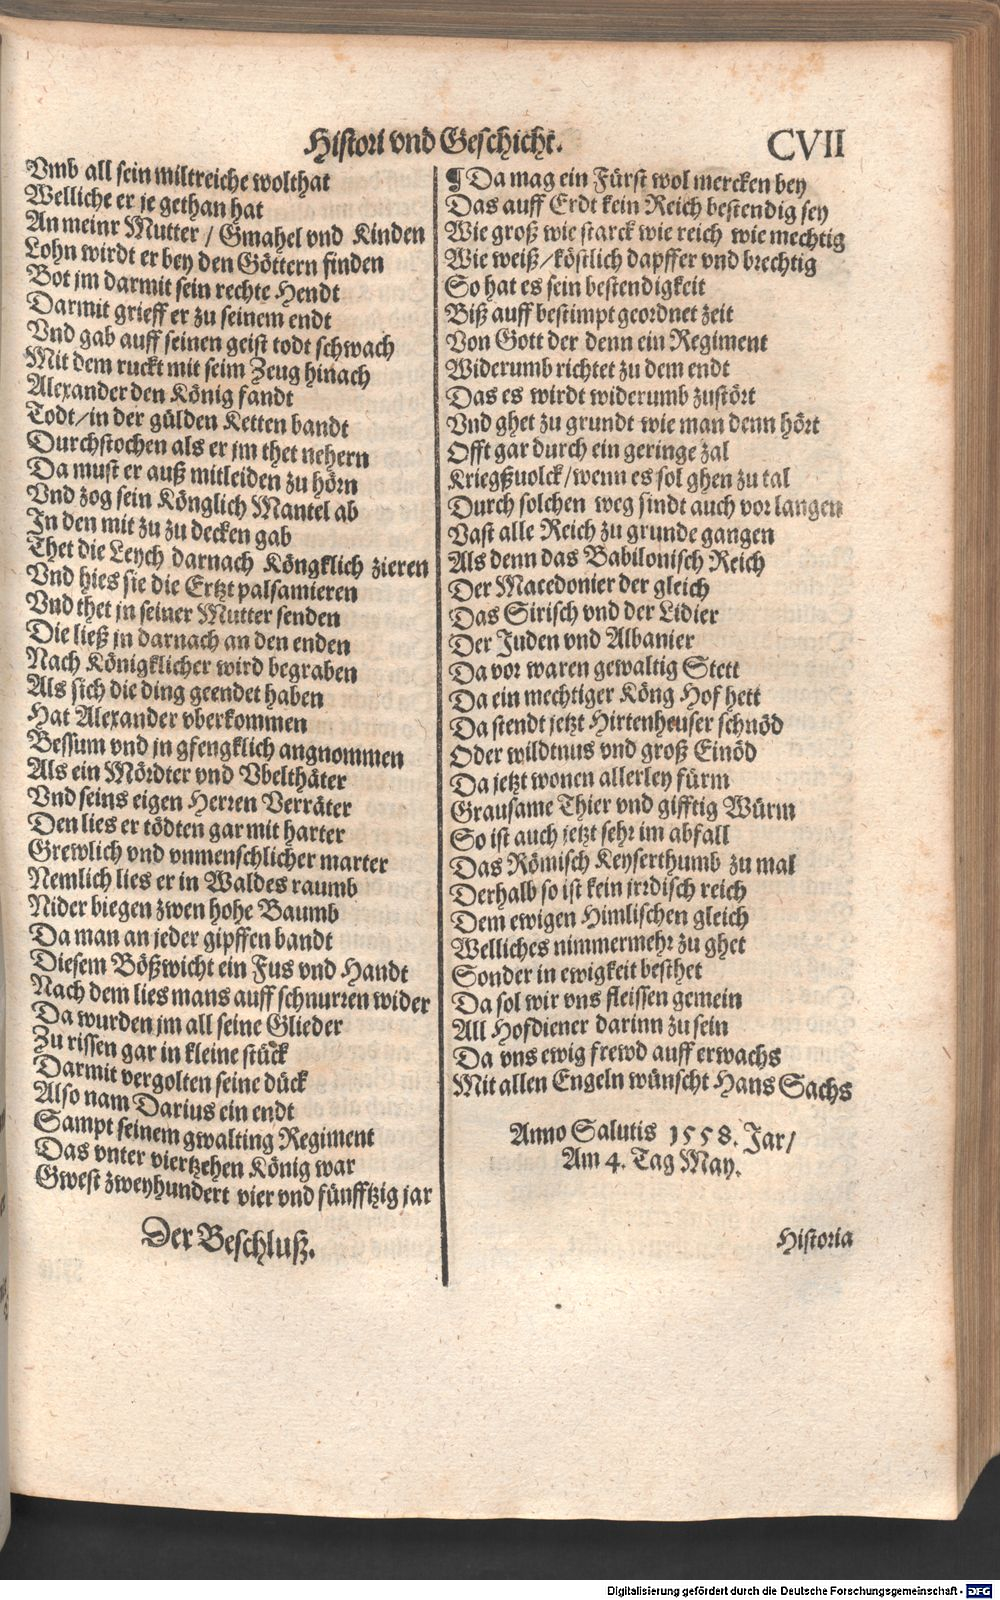 Histori vnd Geschicht.
CVII
Vmb all sein miltreiche wolthat
Welliche er je gethan hat
An meinr Mutter / Gmahel vnd Kinden
Lohn wirdt er bey den Göttern finden
Bot jm darmit sein rechte Hendt
Darmit grieff er zu seinem endt
Vnd gab auff seinen geist todt schwach
Mit dem ruckt mit seim Zeug hinach
Alexander den König fandt
Todt / in der gülden Ketten bandt
Durchstochen als er jm thet nehern
Da must er auß mitleiden zu hörn
Vnd zog sein Könglich Mantel ab
In den mit zu zu decken gab
Thet die Leych darnach Köngklich zieren
Vnd hies sie die Ertzt palsamieren
Vnd thet jn seiner Mutter senden
Die ließ jn darnach an den enden
Nach Königklicher wird begraben
Als sich die ding geendet haben
Hat Alexander vberkommen
Bessum vnd jn gfengklich angnommen
Als ein Mördter vnd Vbelthäter
Vnd seins eigen Herren Verräter
Den lies er tödten gar mit harter
Grewlich vnd vnmenschlicher marter
Nemlich lies er in Waldes raumb
Nider biegen zwen hohe Baumb
Da man an jeder gipffen bandt
Diesem Bößwicht ein Fus vnd Handt
Nach dem lies mans auff schnurren wider
Da wurden jm all seine Glieder
Zu rissen gar in kleine stück
Darmit vergolten seine dück
Also nam Darius ein endt
Sampt seinem gwalting Regiment
Das vnter viertzehen König war
Gwest zweyhundert vier vnd fünfftzig jar
Der Beschluß.
¶ Da mag ein Fürst wol mercken bey
Das auff Erdt kein Reich bestendig sey
Wie groß wie starck wie reich wie mechtig
Wie weiß / köstlich dapffer vnd brechtig
So hat es sein bestendigkeit
Biß auff bestimpt geordnet zeit
Von Gott der denn ein Regiment
Widerumb richtet zu dem endt
Das es wirdt widerumb zustört
Vnd ghet zu grundt wie man denn hört
Offt gar durch ein geringe zal
Kriegßuolck / wenn es sol ghen zu tal
Durch solchen weg sindt auch vor langen
Vast alle Reich zu grunde gangen
Als denn das Babilonisch Reich
Der Macedonier der gleich
Das Sirisch vnd der Lidier
Der Juden vnd Albanier
Da vor waren gewaltig Stett
Da ein mechtiger Köng Hof hett
Da stendt jetzt Hirtenheuser schnöd
Oder wildtnus vnd groß Einöd
Da jetzt wonen allerley fürm
Grausame Thier vnd gifftig Würm
So ist auch jetzt sehr im abfall
Das Römisch Keyserthumb zu mal
Derhalb so ist kein jrrdisch reich
Dem ewigen Himlischen gleich
Welliches nimmermehr zu ghet
Sonder in ewigkeit besthet
Da sol wir vns fleissen gemein
All Hofdiener darinn zu sein
Da vns ewig frewd auff erwachs
Mit allen Engeln wünscht Hans Sachs
Anno Salutis 1558. Jar /
Am 4. Tag May.
Historia
Digitalisierung gefördert durch die Deutsche Forschungsgemeinschaft - DFG